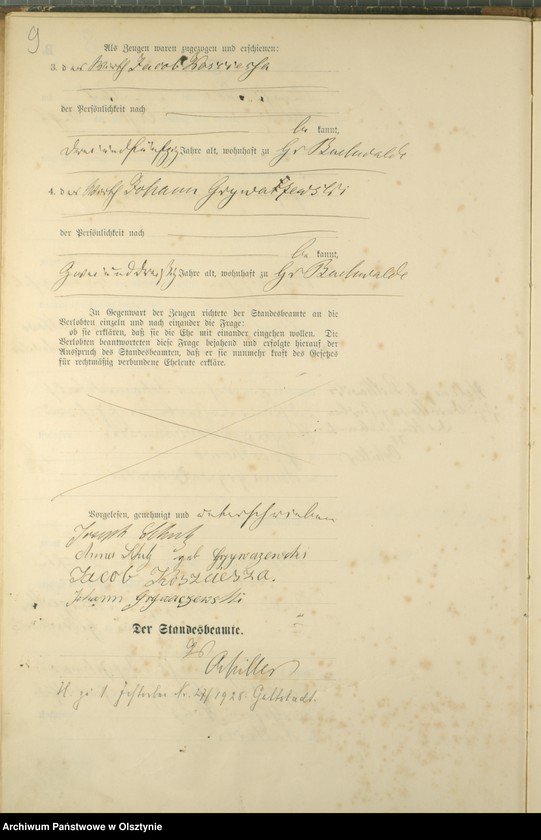 9
Als Zeugen waren zugezogen und erschienen:
3. der Wirth Jacob Kosziescha
der Persönlichkeit nach
be kannt,
drei und fünfzig Jahre alt, wohnhaft zu Gr Buchwalde
4. der Wirth Johann Grywatzewski
der Persönlichkeit nach
be kannt,
zwei und dreißig Jahre alt, wohnhaft zu Gr Buchwalde
In Gegenwart der Zeugen richtete der Standesbeamte an die
Verlobten einzeln und nach einander die Frage:
ob sie erklären, daß sie die Ehe mit einander eingehen wollen. Die
Verlobten beantworteten diese Frage bejahend und erfolgte hierauf der
Ausspruch des Standesbeamten, daß er sie nunmehr kraft des Gesetzes
für rechtmäßig verbundene Eheleute erkläre.
Vorgelesen, genehmigt und unterschrieben
Joseph
Anna geb Grywazewski
Jacob Koszdesza.
Johann Grywaczewski
Der Standesbeamte.
1928. Guttstadt.
Archiwum Państwowe w Olsztynie